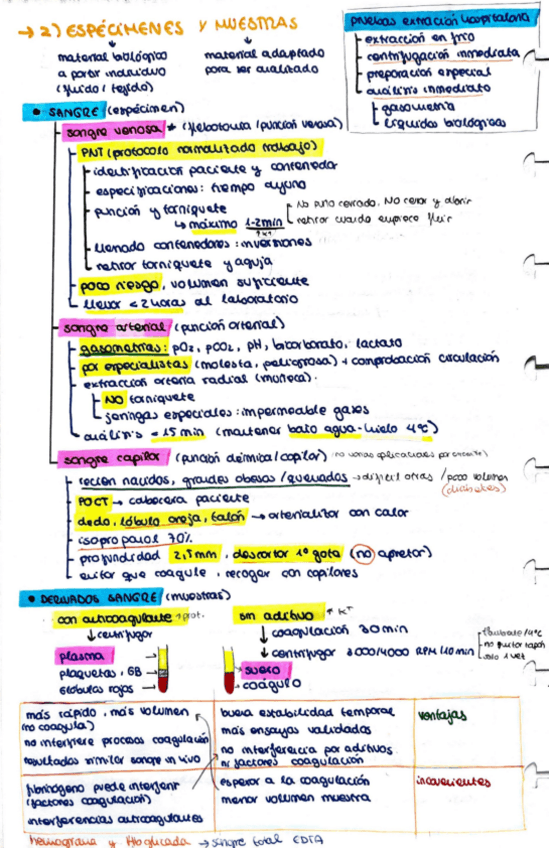 → 2) ESPÉCIMENES Y MUESTRAS
material biológico a partir individuo (fluido / tejido)
material adaptado para ser analizado
pruebas extracción hospitalaria
extracción en frío
centrifugación inmediata
preparación especial
análisis inmediato
gasometría
líquidos biológicos
• SANGRE (espécimen)
sangre venosa * (flebotomía / punción venosa)
PNT (protocolo normalizado trabajo)
identificación paciente y contenedor
especificaciones: tiempo ayuno
punción y torniquete
No puño cerrado, NO cerrar y abrir
↳ máximo 1-2min
retirar cuando empiece fluir
↑KT
llenado contenedores: inversiones
retirar torniquete y aguja
poco riesgo, volumen suficiente
llevar < 2 horas al laboratorio
sangre arterial (punción arterial)
gasometrías: pO2, pCO2, pH, bicarbonato, lactato
por especialistas (molesta, peligrosa) + comprobación circulación
extracción arteria radial (muñeca).
NO torniquete
jeringas especiales: impermeable gases
análisis < 15 min (mantener baño agua-hielo 4ºC)
sangre capilar (punción dérmica/capilar)
recién nacidos, grandes obesos / quemados → difícil otras / poco volumen
(diabetes)
POCT → cabecera paciente
dedo, lóbulo oreja, talón → arterializar con calor
isopropanol 70%
profundidad 2,5mm, descartar 1º gota (no apretar)
evitar que coagule, recoger con capilares
• DERIVADOS SANGRE (muestras)
con anticoagulante ↑prot.
↓ centrifugar
plasma
plaquetas, GB
glóbulos rojos
sin aditivo ↑ KT
↓ coagulación 30 min
↓ centrifugar 3000/4000 RPM (10 min)
no quitar tapón
solo 1 vez
suero
coágulo
más rápido, más volumen
(no coagula)
no interfiere procesos coagulación
resultados similar sangre in vivo
buena estabilidad temporal
más ensayos validados
no interferencia por aditivos
ni factores coagulación
ventajas
fibrinógeno puede interferir
(factores coagulación)
interferencias anticoagulantes
esperar a la coagulación
menor volumen muestra
inconvenientes
hemograma y Hb glucada → sangre total EDTA